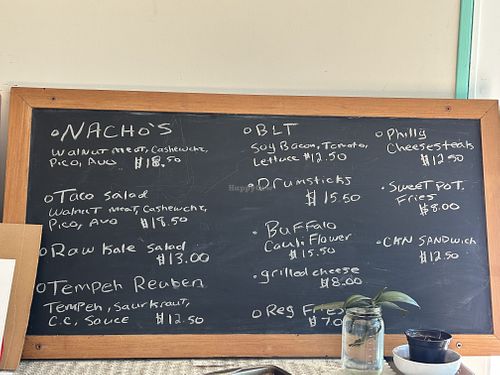 NACHO'S
Walnut meat, Cashewchz,
Pico, Avo $18.50
Taco Salad
Walnut meat, Cashewchz,
Pico, Avo $18.50
Raw Kale Salad
$13.00
Tempeh Reuben
Tempeh, Saurkraut,
C.C, Sauce $12.50
BLT
Soy Bacon, Tomato,
Lettuce $12.50
Drumsticks
$15.50
Buffalo
Cauliflower
$15.50
grilled cheese
$8.00
Reg Fries
Philly
Cheesesteaks
$12.50
Sweet Pot.
Fries
$8.00
CKN Sandwich
$12.50